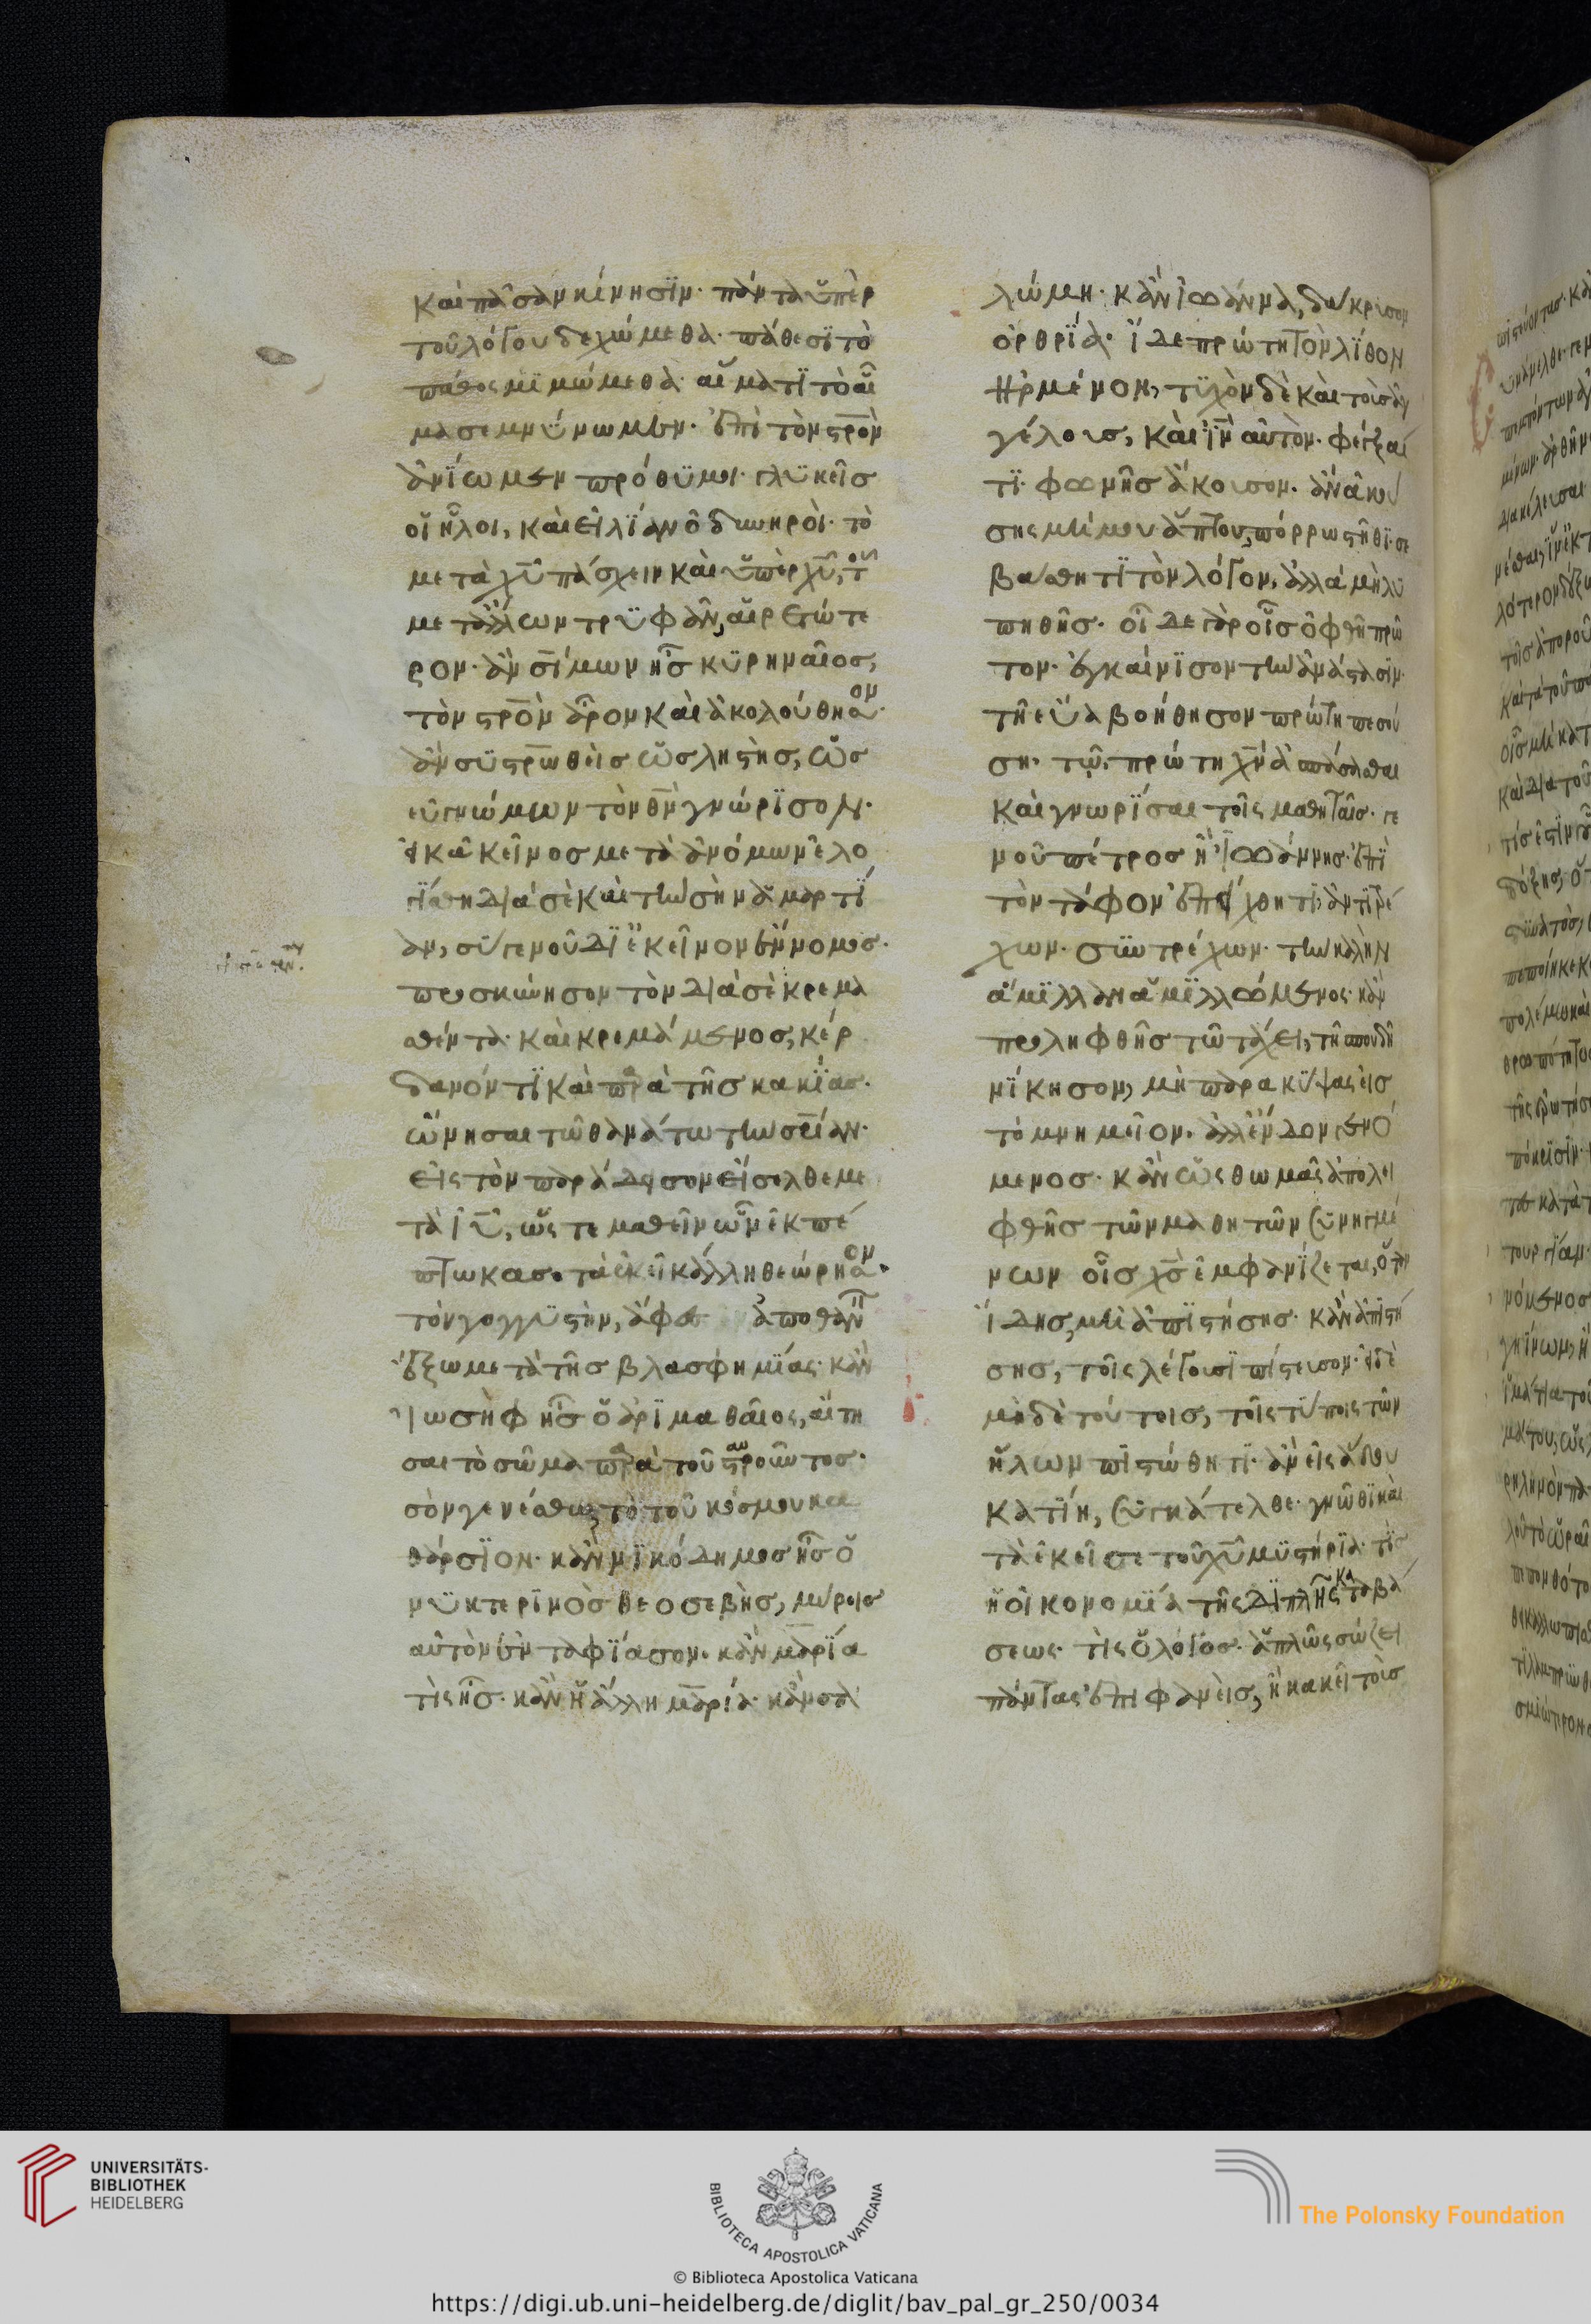 καὶ πᾶσαν κίνησϊν· πάντα ὑπὲρ
τοῦ λόγου δεχώμεθα· πάθεσϊ τὸ
πάθος μϊμώμεθα· αἵματϊ τὸ αἷ
μα σεμνύνωμεν· ἐπὶ τὸν στρον
ἀνΐωμεν πρόθϋμοι· γλϋκεῖς
οἱ ἧλοι, καὶ εἰ λΐαν ὀδυνηροί· τὸ
μετὰ χυ πάσχειν καὶ ὑπὲρ χυ, τοῦ
μετ' ἄλλων τρυφᾶν, αἱρετώτε
ρον· ἂν σίμων ἦς κϋρηναῖος,
τὸν στρον ἆρον καὶ ἀκολούθησον·
ἂν σϋστρωθεὶς ὡς ληστὴς, ὡς
εὐγνώμων τὸν θν γνώρϊσον·
εἰ κἀκεῖνος μετὰ ἀνόμων ἐλο
γΐσθη διὰ σὲ καὶ τὴν σὴν ἁμαρτΐ
αν, σὺ γενοῦ δϊ' ἐκεῖνον ἔννομος·
προσκύνησον τὸν διὰ σὲ κρεμα
σθέντα· καὶ κρεμάμενος, κέρ
δανόν τϊ καὶ παρὰ τῆς κακΐας·
ὤνησαι τῶ θανάτω τὴν σρίαν·
εἰς τὸν παράδεισον εἴσελθε με
τὰ ιυ, ὥστε μαθεῖν ὧν ἐκπέ
πτωκας· τὰ ἐκεῖ κάλλη θεώρησον·
τὸν γογγϋστὴν, ἄφες ἀποθανεῖν
ἔξω μετὰ τῆς βλασφημΐας· κἂν
ἰωσὴφ ἦς ὁ ἀρϊμαθαῖος, αἴτη
σαι τὸ σῶμα παρὰ τοῦ σταυροῦντος·
σὸν γενέσθω, τὸ τοῦ κόσμου κα
θάρσϊον· κἂν νϊκόδημος ἦς ὁ
νυκτερϊνὸς θεοσεβὴς, μύροις
αὐτὸν ἐνταφΐασον· κἂν μαρΐα
τὶς ἦς· κἂν ἡ ἄλλη μαρία· κἂν σα
λώμη· κἂν ἰωάννα, δάκρυσον
ὄρθρΐα· ἴδε πρώτη τὸν λΐθον
ἠρμένον, τϋχὸν δὲ καὶ τοὺς ἀγ
γέλους, καὶ ιν αὐτόν· φθέγξαί
τϊ· φωνῆς ἄκουσον· ἂν ἀκού
σης μή μου ἅπτου, πόρρω στῆθϊ· σε
βάσθητϊ τὸν λόγον, ἀλλὰ μὴ λυ
πηθῆς· οἶδε γὰρ οἷς ὀφθῆ πρῶ
τον· ἐγκαίνϊσον τὴν ἀνάστασϊν·
τῆ εὔα βοήθησον πρώτη πεσού
ση· τῶ, πρώτη χν ἀσπάσασθαι
καὶ γνωρΐσαι τοῖς μαθηταῖς· γε
νοῦ πέτρος ἢ ἰωάννης· ἐπὶ
τὸν τάφον ἐπείχθητϊ, ἀντϊτρέ
χων· σϋντρέχων· τὴν καλὴν
ἅμϊλλαν ἁμϊλλώμενος· κἂν
προληφθῆς τῶ τάχει, τῆ σπουδῆ
νΐκησον, μὴ παρακύψας εἰς
τὸ μνημεῖον, ἀλλ' ἔνδον γενό
μενος· κἂν ὡς θωμᾶς ἀπολει
φθῆς τῶν μαθητῶν συνηγμέ
νων οἷς χς ἐμφανΐζεται, ὅταν
ἴδης, μὴ ἀπϊστήσης· κἂν ἀπϊστή
σης, τοῖς λέγουσϊ πίστευσον· εἰ δὲ
μὴδὲ τούτοις, τοῖς τύποις τῶν
ἥλων πϊστώθητϊ· ἂν εἰς ἅδου
κατΐη, συγκάτελθε· γνῶθϊ καὶ
τὰ ἐκεῖσε τοῦ χυ μϋστήρϊα· τίς
ἡ οἰκονομΐα τῆς δϊπλῆς καταβά
σεως· τίς ὁ λόγος· ἁπλῶς σώζει
πάντας ἐπιφανεὶς, ἢ κἀκεῖ τοὺς
UNIVERSITÄTS-
BIBLIOTHEK
HEIDELBERG
BIBLIOTECA APOSTOLICA VATICANA
The Polonsky Foundation
© Biblioteca Apostolica Vaticana
https://digi.ub.uni-heidelberg.de/diglit/bav_pal_gr_250/0034